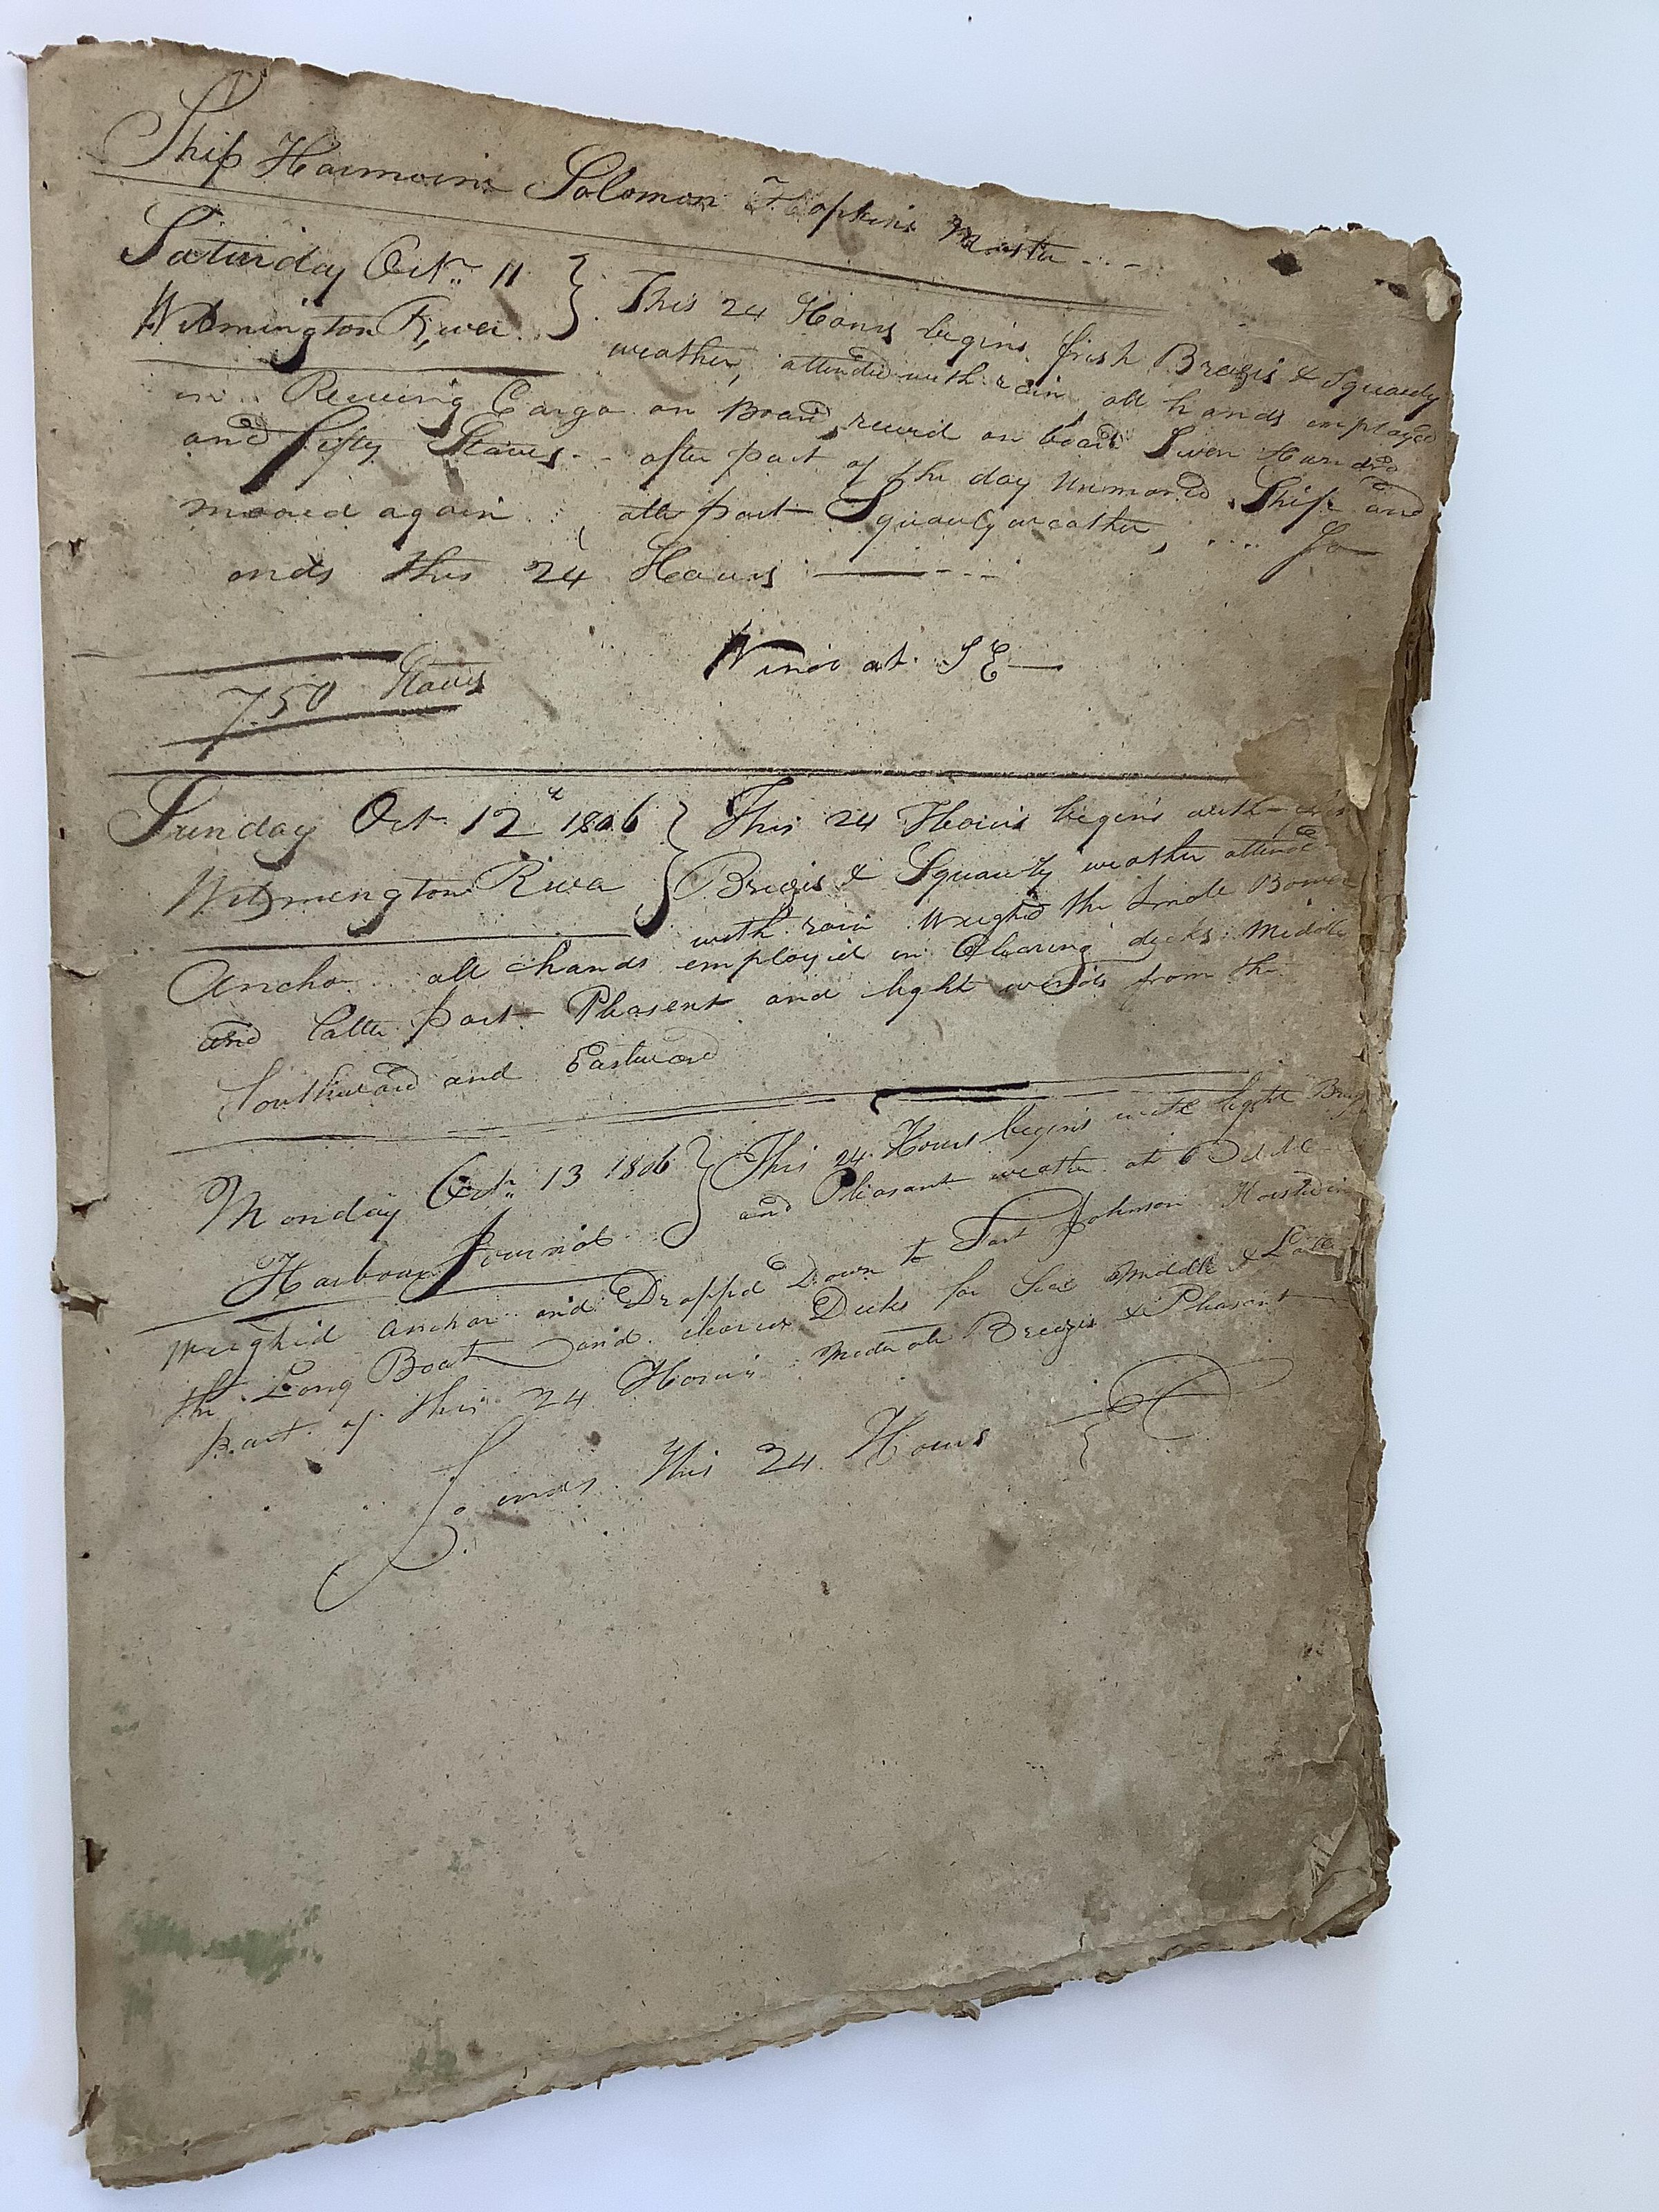 Ship Harmoine Solomon Hopkins Master
Saturday Octr 11 } This 24 Hours begins fresh Brezis & Squawly
Wilmington River weather, attended with rain all hands employed
in Receving Cargo on Board, receivd on board Seven Hundrd
and fifty Staves - after part of the day Unmoored Ship and
moored again, all part Squawly weather, So
ends this 24 Hours
750 Staves Wind at S E
Sunday Octr 12th 1806 } This 24 Hours begins with
Wilmengton River } Brezis & Squawly weather attend
with rain Weighd the Smole Bower
Anchor all hands employid in Clearing decks Middle
and Latter part Pleasent and light winds from the
Southward and Eastward
Monday Octr 13 1806 } This 24 Hours begins with light Brez
Harbour Journal and Pleasant weather at 6
weighid anchor and Dropped Down to Fort Johnson Hoisted in
the Long Boat and cleared Decks for Sea Middle & Latter
part of this 24 Hours Moderate Breezis & Pleasant
So ends This 24 Hours